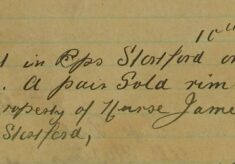 10th
in Bps Stortford on
. A pair Gold rim
roperty of Nurse Jame
Stortford,